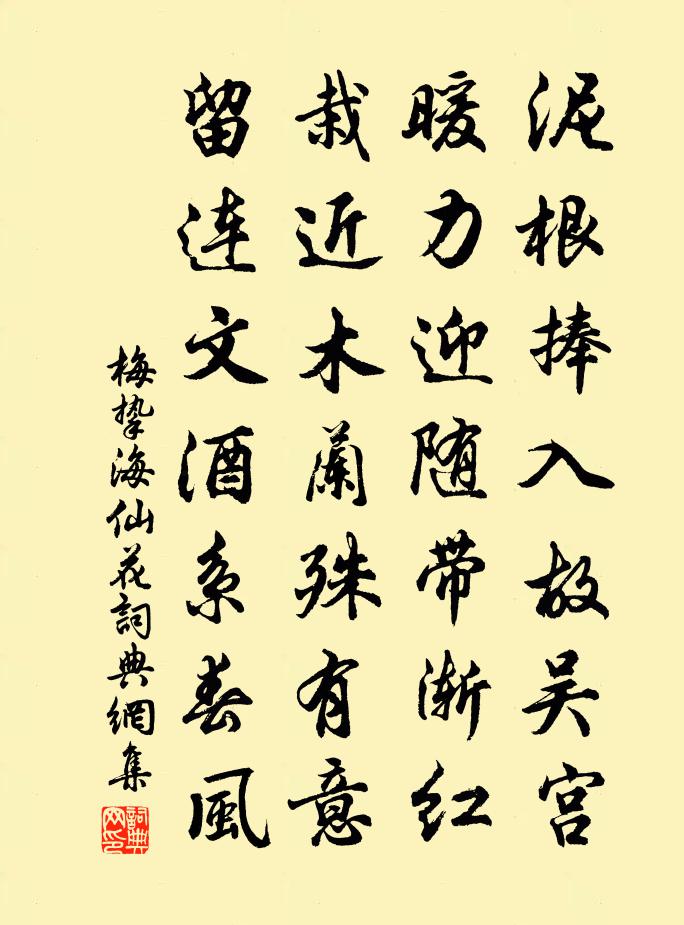 泥根捧入故吴宫
暖力迎随带渐红
栽近木兰殊有意
留连文酒系春风
梅挚海仙花詞典網集
詞典网印